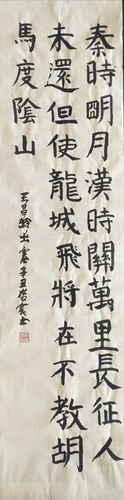 秦時明月漢時關萬里長征人
未還但使龍城飛將在不教胡
馬度陰山
王昌齡出塞辛丑